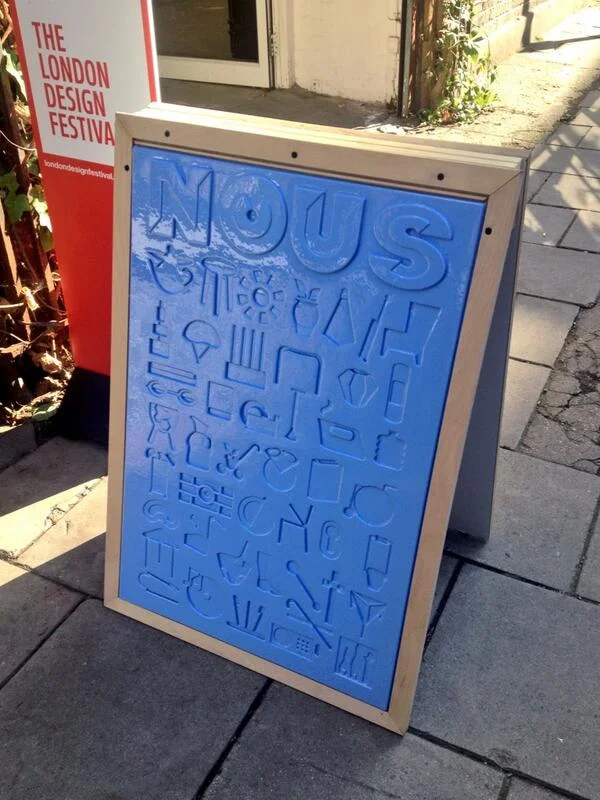 THE
LONDON
DESIGN
FESTIVA
londondesignfestival.
NOUS